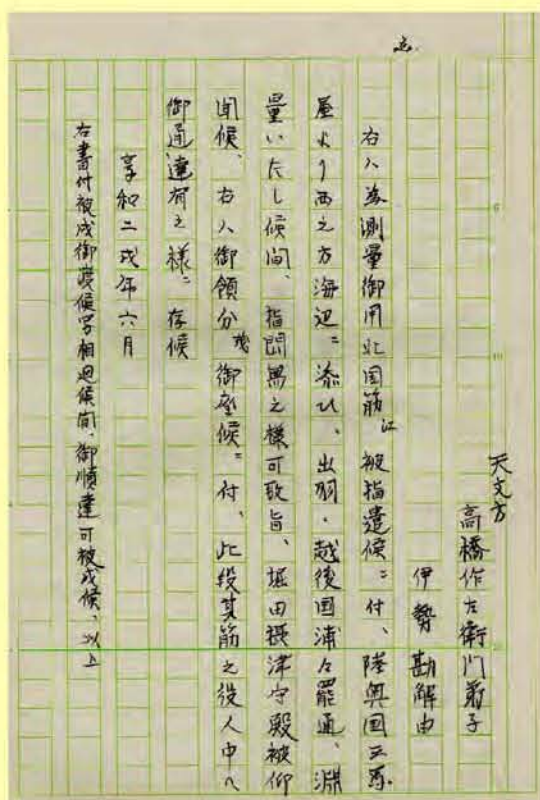 天文方
高橋作左衛門弟子
伊勢勘解由
右ハ為測量御用北国筋江被指遣候ニ付、陸奥国三厩
屋より西之方海辺ニ添ひ、出羽・越後国浦々罷通、測
量いたし候間、指問無之様可致旨、堀田摂津守殿被仰
聞候、右ハ御領分茂御座候ニ付、此段其筋之役人中へ
御通達有之様ニ存候
享和二戌年六月
右書付被成御渡候写相廻候間、御順達可被成候、以上